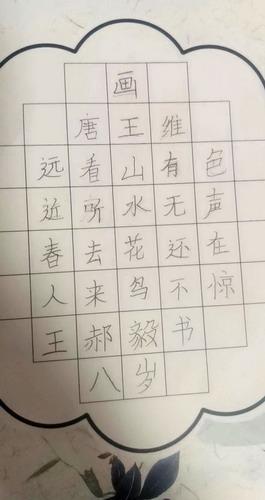 画
唐王维
远看山有色
近听水无声
春去花还在
人来鸟不惊
王郝毅书
八岁